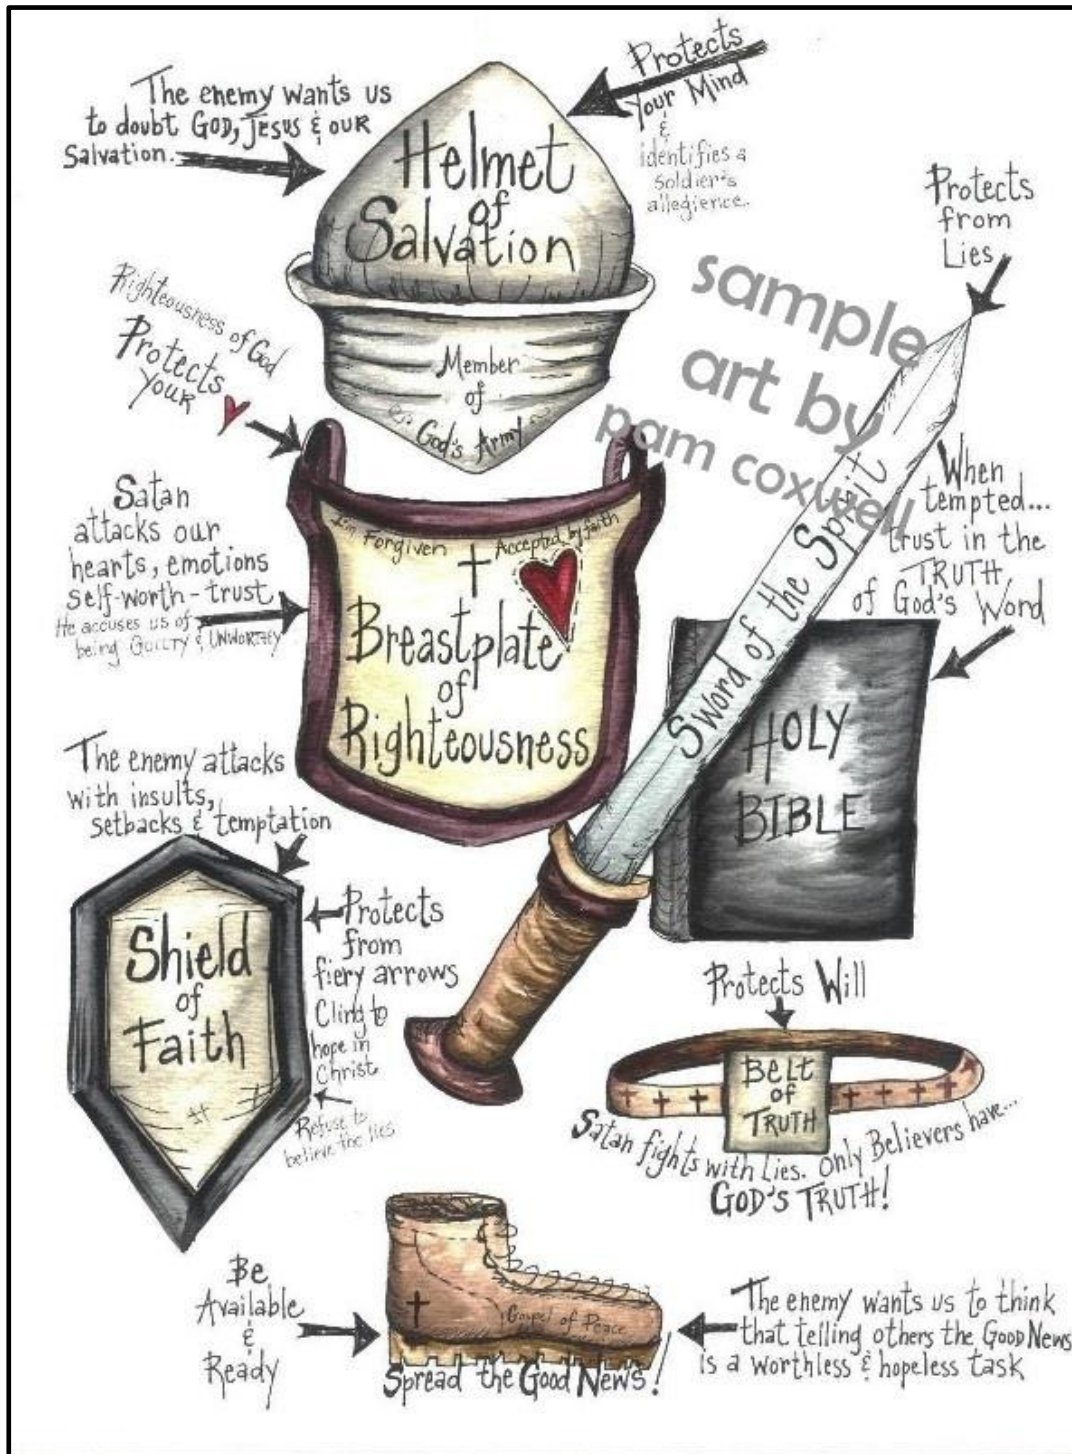 The enemy wants us
to doubt GOD, JESUS & OUR
Salvation.
Protects
Your Mind
&
identifies a
soldier's
allegience.
Helmet
of
Salvation
Member
of
God's Army
Protects
from
Lies
sample
art by
pam coxwell
Righteousness of God
Protects
YOUR
Satan
attacks our
hearts, emotions
self-worth - trust
He accuses us of
being GUILTY & UNWORTHY
I'm Forgiven
Accepted by faith
Breastplate
of
Righteousness
Sword of the Spirit
When
tempted...
trust in the
TRUTH
of God's Word
HOLY
BIBLE
The enemy attacks
with insults,
setbacks & temptation
Shield
of
Faith
Protects
from
fiery arrows
Cling to
hope in
Christ
Refuse to
believe the lies
Protects Will
BELT
of
TRUTH
Satan fights with Lies. Only Believers have...
GOD'S TRUTH!
Be
Available
&
Ready
Gospel of Peace
Spread the Good News!
The enemy wants us to think
that telling others the GOOD NEWS
is a worthless & hopeless task